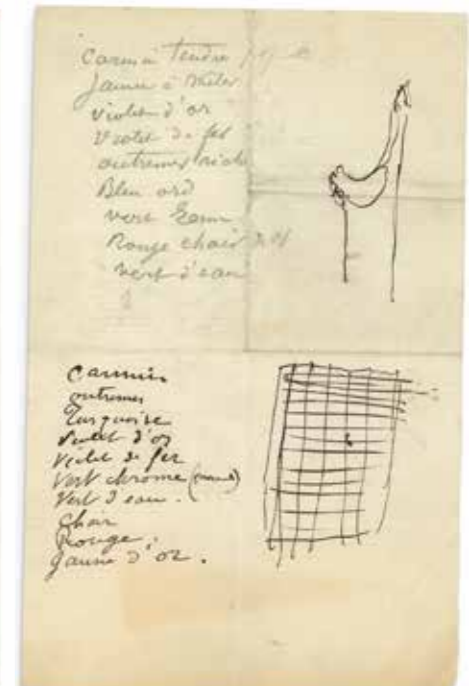 Carmin Tendre
Jaune à
Violet d'or
Violet de fer
outremer riche
Bleu ord
vert
Rouge chair
vert d'eau
Carmin
outremer
Turquoise
Violet d'or
Violet de fer
Vert chrome
Vert d'eau.
Chair
Rouge.
Jaune d'or.